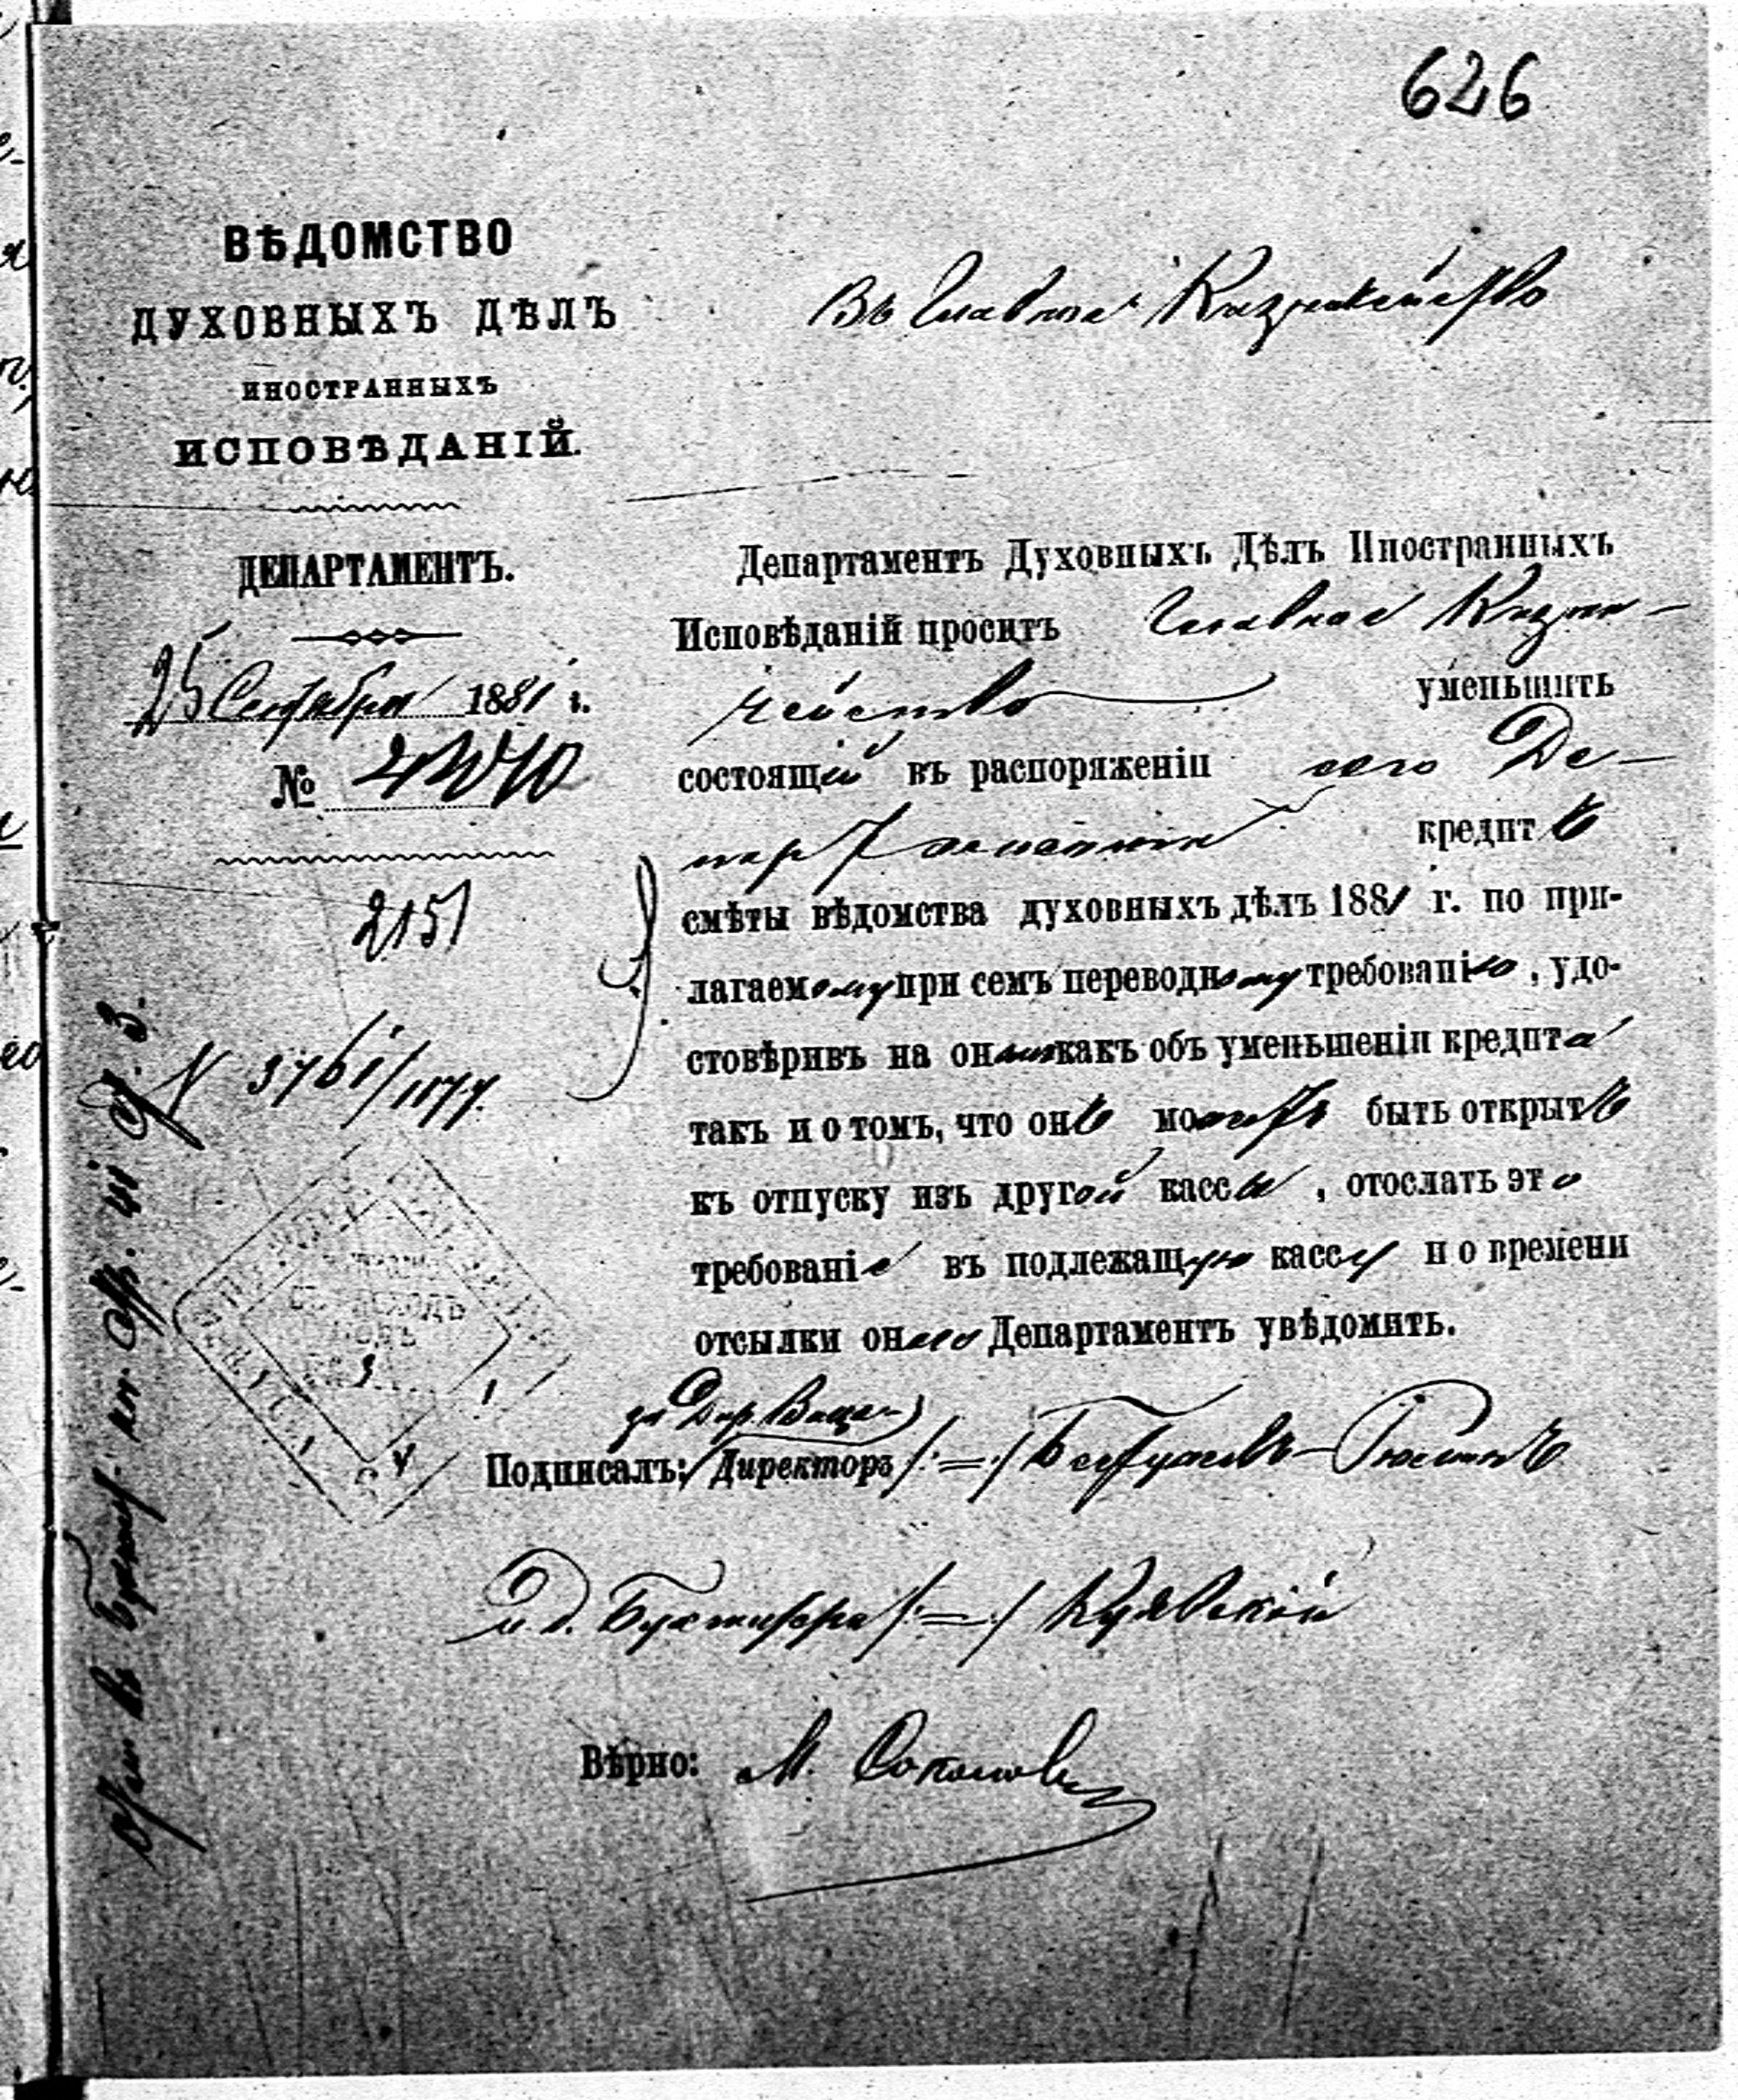 626
ВѢДОМСТВО
ДУХОВНЫХЪ ДѢЛЪ
ИНОСТРАННЫХЪ
ИСПОВѢДАНІЙ.
ДЕПАРТАМЕНТЪ.
25 Сентября 1881 г.
№
2151
№ 3761/1877.
Въ Главное Казначейство
Департаментъ Духовныхъ Дѣлъ Иностранныхъ
Исповѣданій проситъ Главное Казна-
чейство уменьшить
состоящій въ распоряженіи сего Де-
партамента кредитъ
смѣты вѣдомства духовныхъ дѣлъ 1881 г. по при-
лагаемому при семъ переводному требованію, удо-
стовѣривъ на ономъ какъ объ уменьшеніи кредита
такъ и о томъ, что онъ можетъ быть открытъ
къ отпуску изъ другой кассы, отослать это
требованіе въ подлежащую кассу и о времени
отсылки онаго Департаментъ увѣдомить.
за Дир. Вице-
Подписалъ: Директоръ /:=:/ Бестужевъ-Рюминъ
и. д. Бухгалтера /:=:/ Куявскій
Вѣрно: М. Соколовъ